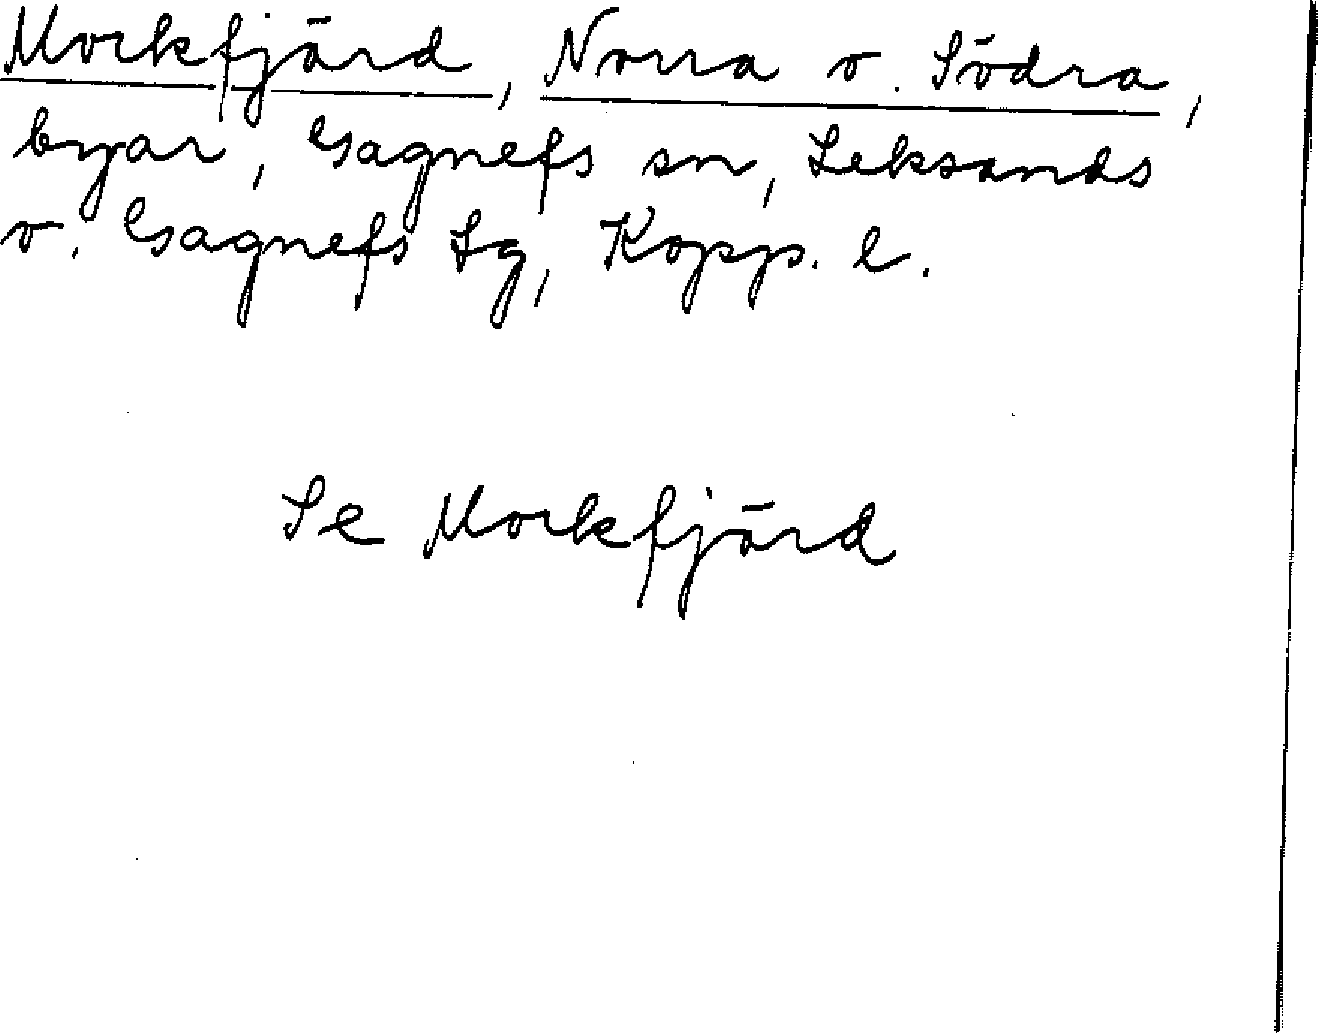 Mockfjärd, Norra o. Södra,
byar, Gagnefs sn, Leksands
o. Gagnefs tg, Kopp. l.
Se Mockfjärd